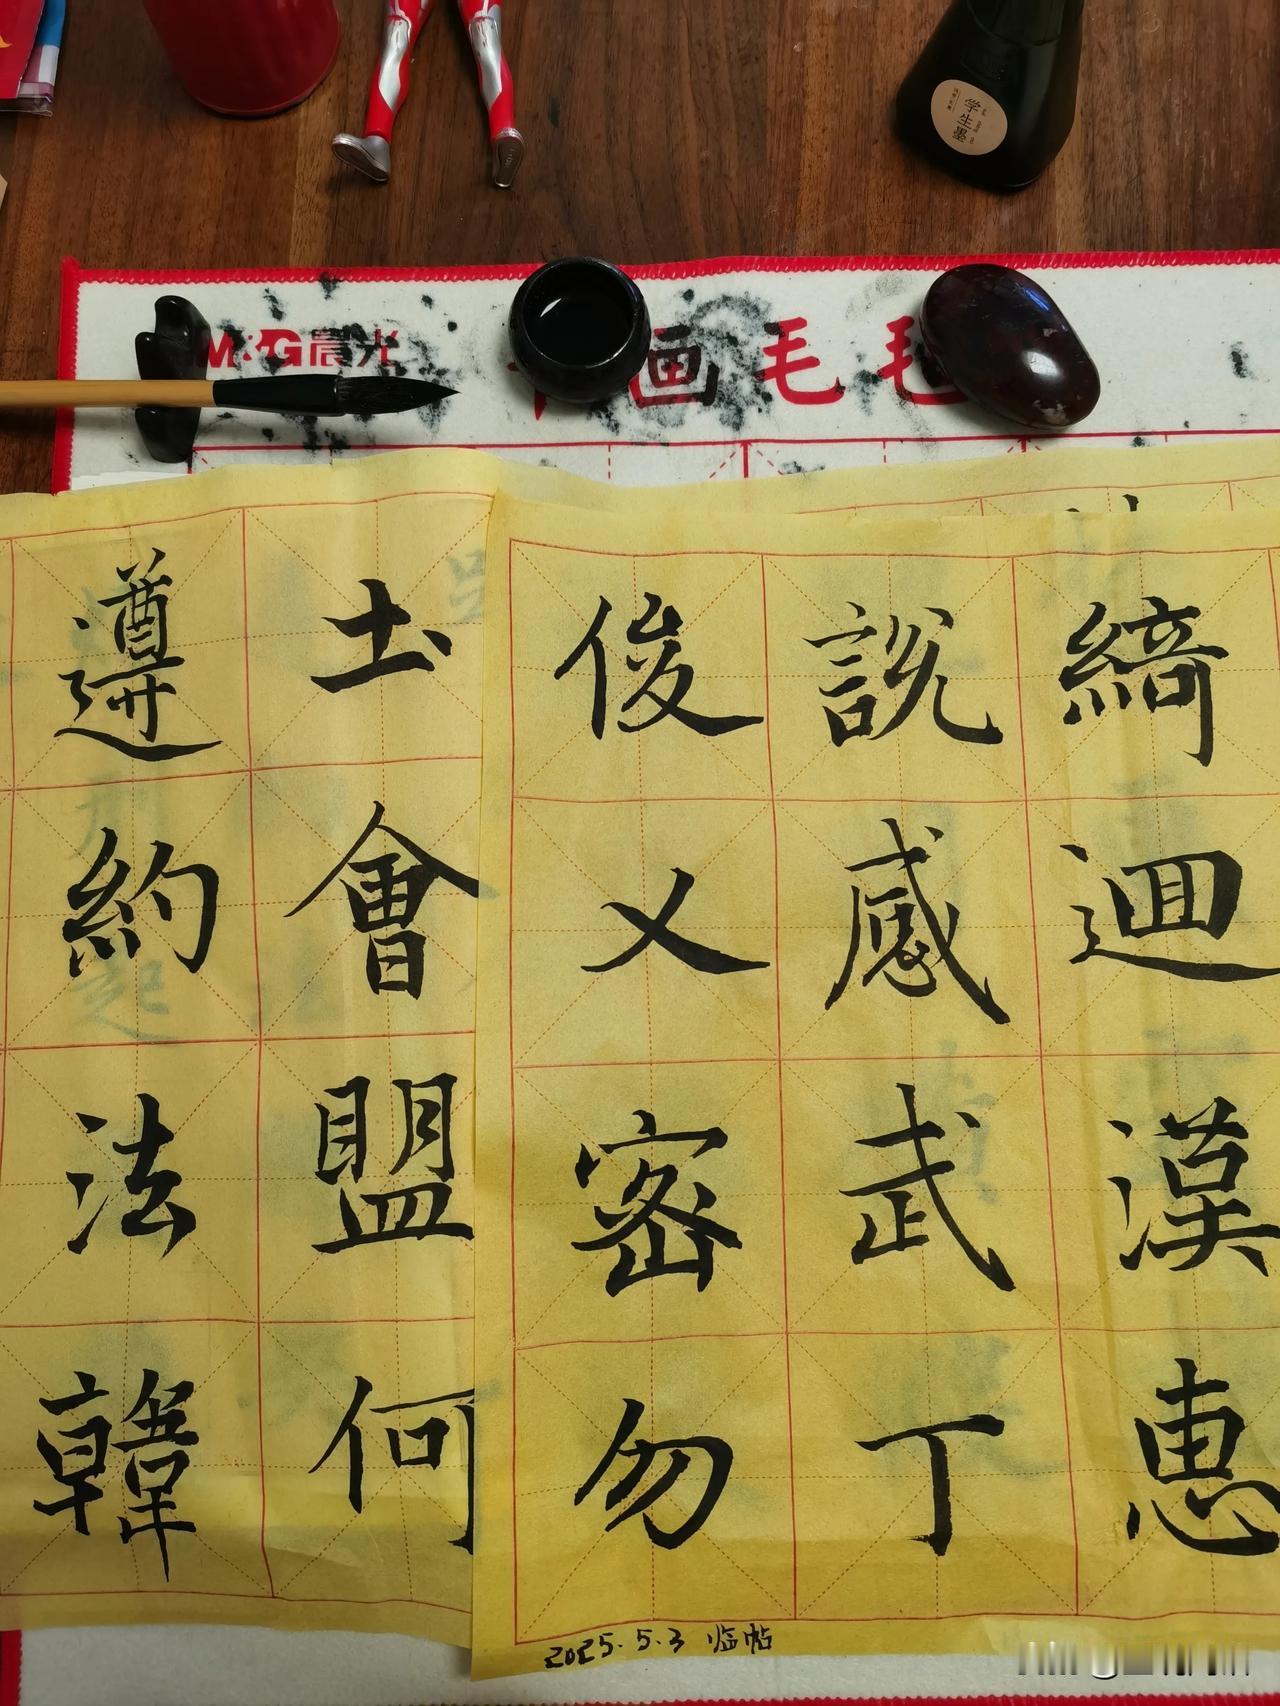 学生墨
M&G晨光
画毛
綺迴漢惠
說感武丁
俊乂密勿
土會盟何
遵約法韓
2025.5.3 临帖